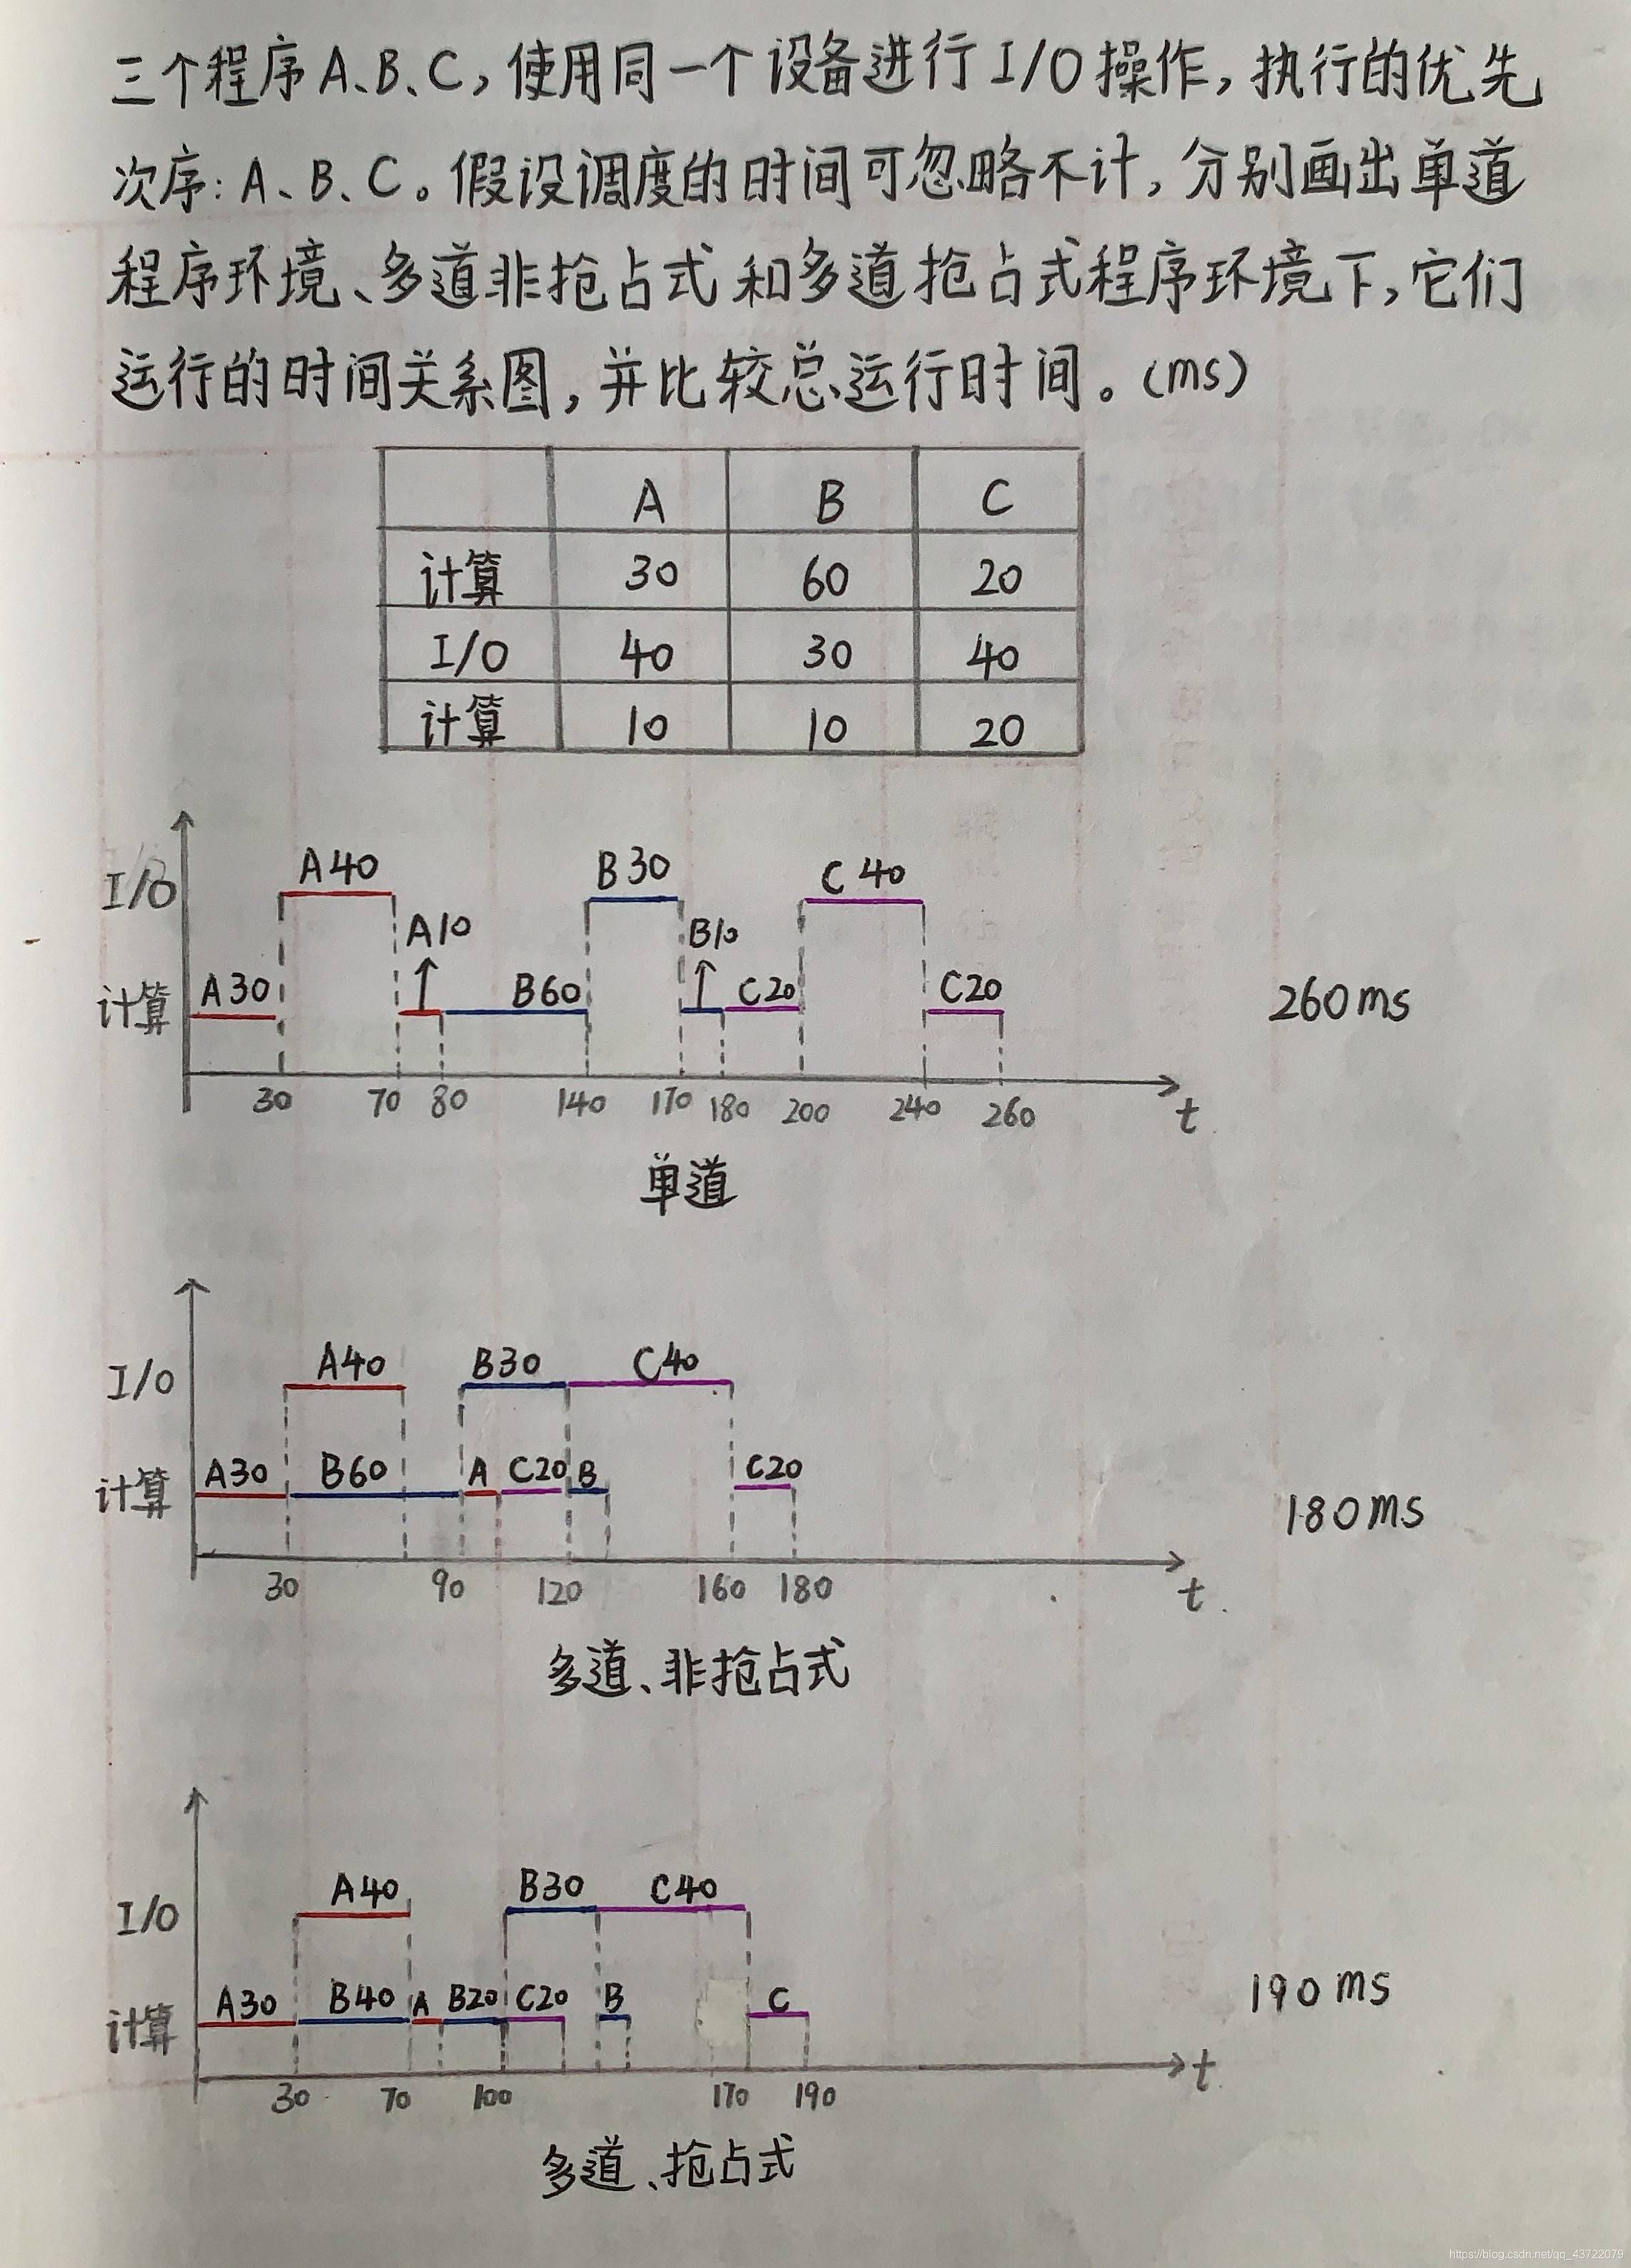 三个程序A、B、C,使用同一个设备进行I/O操作,执行的优先
次序:A、B、C。假设调度的时间可忽略不计,分别画出单道
程序环境、多道非抢占式和多道抢占式程序环境下,它们
运行的时间关系图,并比较总运行时间。(ms)
A B C
计算 30 60 20
I/O 40 30 40
计算 10 10 20
A40 B30 C40
I/O
A10 B10
A30 B60 C20 C20
计算
260ms
30 70 80 140 170 180 200 240 260 t
单道
A40 B30 C40
I/O
A30 B60 A C20 B C20
计算
180ms
30 90 120 160 180 t
多道、非抢占式
A40 B30 C40
I/O
A30 B40 A B20 C20 B C
计算
190ms
30 70 100 170 190 t
多道、抢占式
https://blog.csdn.net/qq_43722079